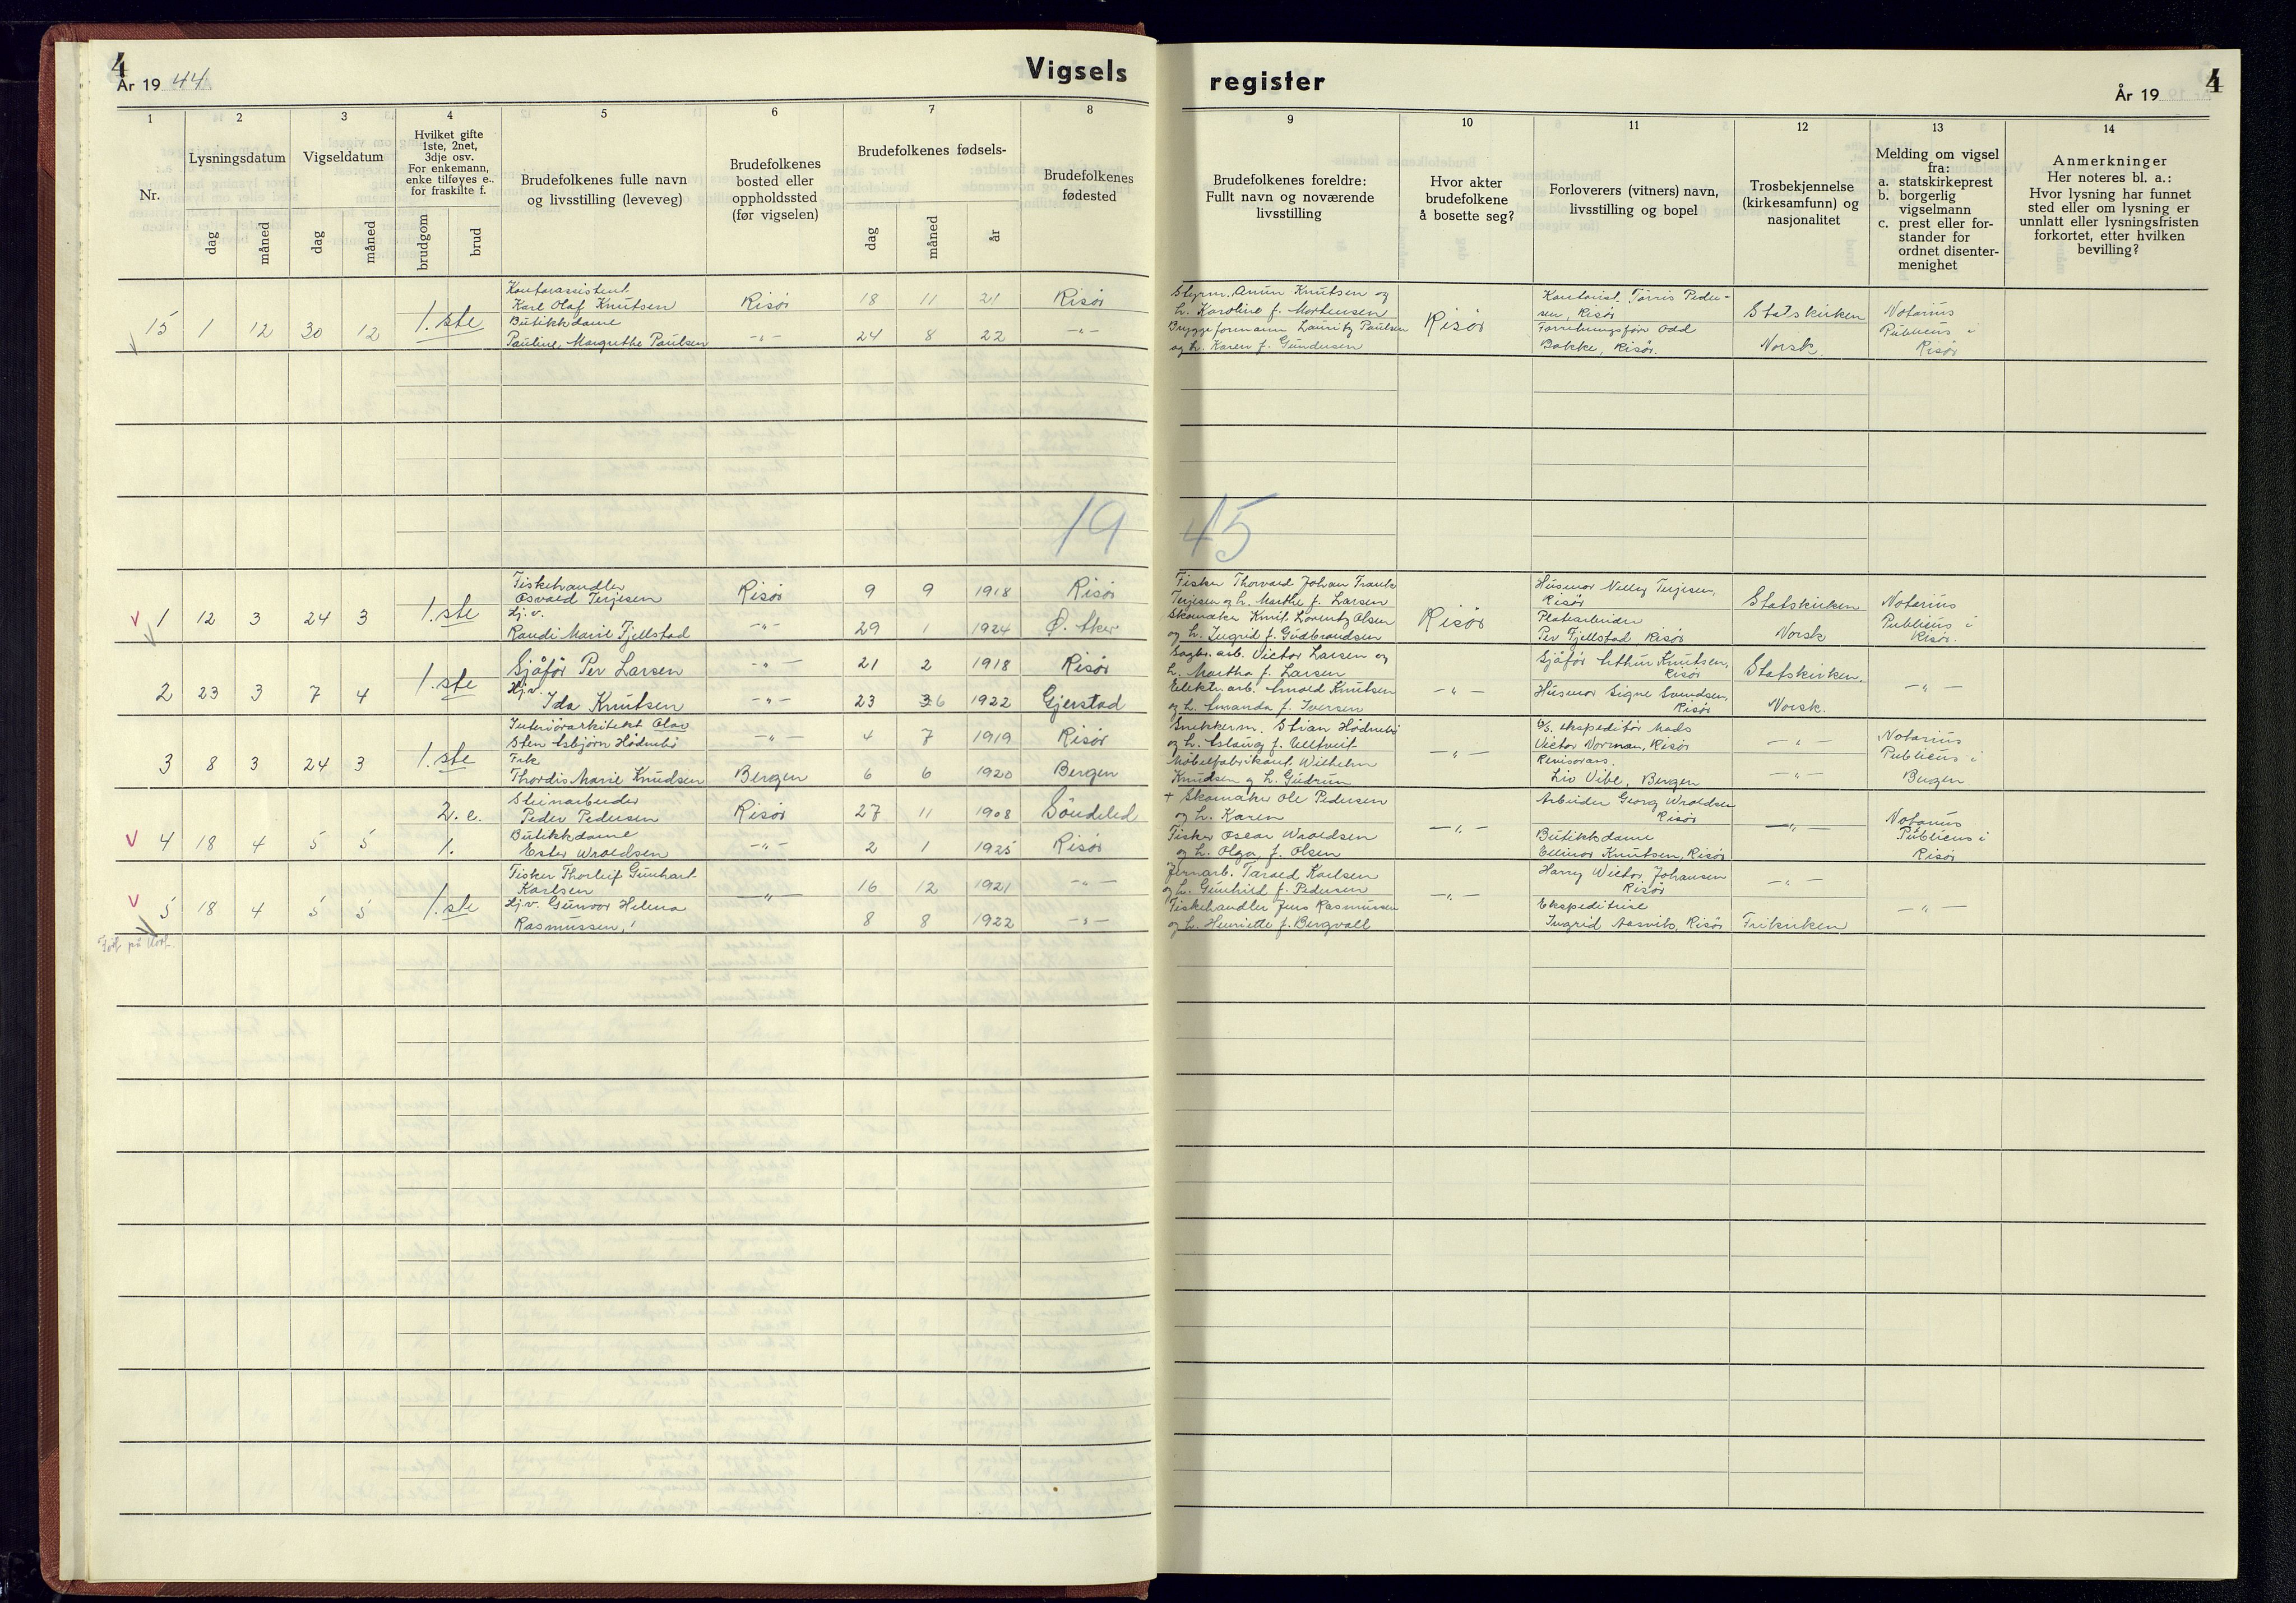 4
År 19 44
Vigsels
register
4
År 19
1
2
3
4
5
6
7
8
9
10
11
12
13
14
Nr.
Lysningsdatum
dag
måned
Vigseldatum
dag
måned
Hvilket gifte
1ste, 2net,
3dje osv.
For enkemann,
enke tilføyes e.,
for fraskilte f.
brudgom
brud
Brudefolkenes fulle navn
og livsstilling (leveveg)
Brudefolkenes
bosted eller
oppholdssted
(før vigselen)
Brudefolkenes fødsels-
dag
måned
år
Brudefolkenes
fødested
Brudefolkenes foreldre:
Fullt navn og noværende
livsstilling
Hvor akter
brudefolkene
å bosette seg?
Forloverers (vitners) navn,
livsstilling og bopel
Trosbekjennelse
(kirkesamfunn) og
nasjonalitet
Melding om vigsel
fra:
a. statskirkeprest
b. borgerlig
vigselmann
c. prest eller for-
stander for
ordnet disenter-
menighet
Anmerkninger
Her noteres bl. a.:
Hvor lysning har funnet
sted eller om lysning er
unnlatt eller lysningsfristen
forkortet, etter hvilken
bevilling?
15 1 12 30 12 1.ste
Kontorassistent
Karl Olaf Knutsen Risør 18 11 21 Risør
Butikkdame
Pauline, Margrethe Paulsen -"- 24 8 22 -"-
Styrm. Knutsen og
h. Karoline f. Mortensen
Bryggeformann Lauritz Paulsen
og h. Karen f. Gundersen
Risør
Kontorist. Tørris Peder-
sen, Risør
Forretningsfør Odd
Bakke, Risør.
Statskirken
Norsk.
Notarius
Publicus i
Risør
19 45
V 1 12 3 24 3 1.ste
Fiskehandler
Osvald Terjesen Risør 9 9 1918 Risør
Hj.v.
Randi Marie Fjellstad -"- 29 1 1924 Ø. Aker
Fisker Thorvald Johan Frank
Terjesen og h. Marthe f. Larsen
Skomaker Knut Lorentz Olsen
og h. Ingrid f. Gudbrandsen
Risør
Husmor Nelly Terjesen,
Risør
Platearbeider
Per Fjellstad Risør
Statskirken
Norsk
Notarius
Publicus i
Risør.
2 23 3 7 4 1.ste
Sjåfør Per Larsen -"- 21 2 1918 Risør
Hj.v.
Ida Knutsen -"- 23 6 1922 Gjerstad
Sagbr. arb. Victor Larsen og
h. Martha f. Larsen
Elektr. arb. Arnold Knutsen
og h. Amanda f. Iversen
-"-
Sjåfør Arthur Knutsen,
Risør
Husmor Signe Svendsen,
Risør
Statskirken.
Norsk.
-"-
3 8 3 24 3 1.ste
Interiørarkitekt Olav
Sten Asbjørn Hødnebø -"- 4 7 1919 Risør
Frk
Thordis Marie Knudsen Bergen 6 6 1920 Bergen
Snekkerm. Stian Hødnebø
og h. Aslaug f.
Møbelfabrikant Wilhelm
Knudsen og h. Gudrun
-"-
ekspeditør Mads
Victor Norman, Risør
Revisorass.
Liv Vibe, Bergen
-"-
-"-
Notarius
Publicus i
Bergen
V 4 18 4 5 5 2. e.
Steinarbeider
Peder Pedersen Risør 27 11 1908 Søndeled
1.
Butikkdame
Ester Wroldsen -"- 2 1 1925 Risør
+ Skomaker Ole Pedersen
og h. Karen
Fisker Oscar Wroldsen
og h. Olga f. Olsen
-"-
Arbeider Georg Wroldsen
Risør
Butikkdame
Ellinor Knutsen, Risør
-"-
Notarius
Publicus i
Risør
V 5 18 4 5 5 1.ste
Fisker Thorleif Gunhart
Karlsen -"- 16 12 1921 -"-
Hj.v. Gunvor Helena
Rasmussen, 8 8 1922 -"-
Jernarb. Tarald Karlsen
og h. Gunhild f. Pedersen
Fiskehandler Jens Rasmussen
og h. Henriette f. Bergvall
-"-
Harry Wictor Johansen
Risør
Ekspeditrise
Ingrid Aasvik, Risør
-"-
Frikirken
-"-
Ført på kort.